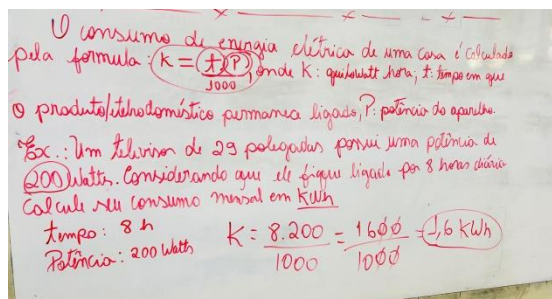 O consumo de energia elétrica de uma casa é calculado
pela formula: K = t.P / 1000, onde K: quilowatt hora; t: tempo em que
o produto/eletrodoméstico permaneça ligado, P: potência do aparelho.
Ex.: Um televisor de 29 polegadas possui uma potência de
200 Watts. Considerando que ele fique ligado por 8 horas diária
Calcule seu consumo mensal em KWh
tempo: 8 h
Potência: 200 Watts
K = 8.200 / 1000 = 1600 / 1000 = 1,6 KWh